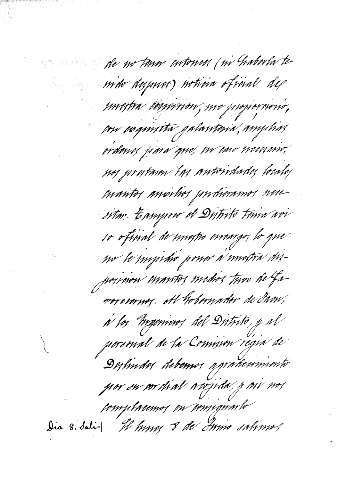 de no tener entonces (ni haberla te-
nido despues) noticia oficial de
nuestra expedicion, me proporcionó,
con exquisita galanteria, amplias
órdenes para que, en caso necesario,
nos prestaran las autoridades locales
cuantos auxilios pudieramos nece-
sitar. Tampoco el Distrito tenia avi-
so oficial de nuestro encargo, lo que
no le impidió poner á nuestra dis-
posicion cuantos medios tuvo de fa-
vorecernos. Al Gobernador de Jaen,
á los Ingenieros del Distrito, y al
personal de la Comision regia de
Deslindes debemos agradecimiento
por su cordial acogida, y asi nos
complacemos en consignarlo
Dia 8. Sali- El lunes 8 de Junio salimos